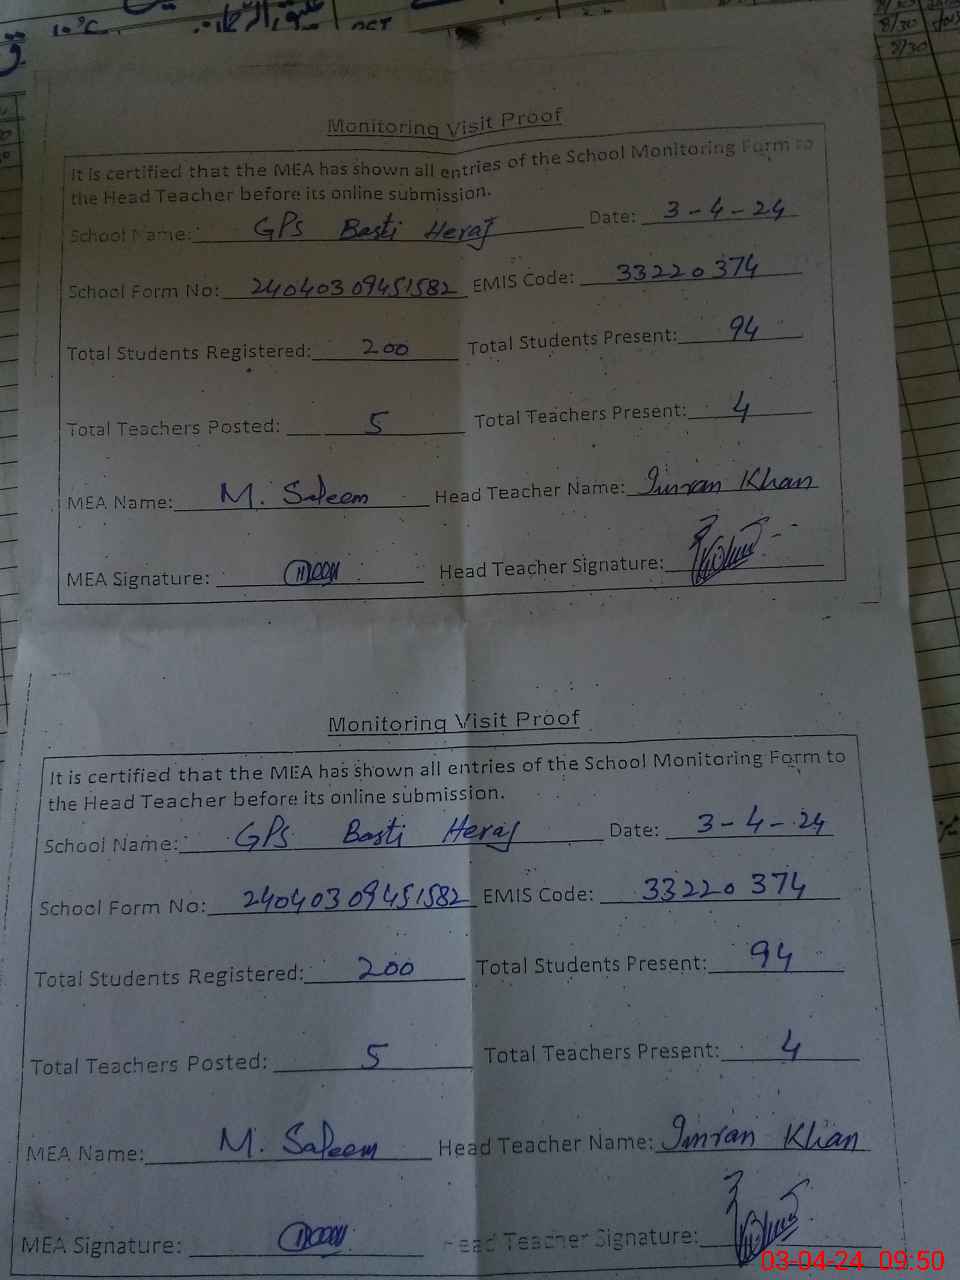 10°C
8/30
8/30
Monitoring Visit Proof
It is certified that the MEA has shown all entries of the School Monitoring Form to
the Head Teacher before its online submission.
School Name: GPS Basti Heraj Date: 3-4-24
School Form No: 24040309451582 EMIS Code: 33220374
Total Students Registered: 200 Total Students Present: 94
Total Teachers Posted: 5 Total Teachers Present: 4
MEA Name: M. Saleem Head Teacher Name: Imran Khan
MEA Signature: Head Teacher Signature:
Monitoring Visit Proof
It is certified that the MEA has shown all entries of the School Monitoring Form to
the Head Teacher before its online submission.
School Name: GPS Basti Heraj Date: 3-4-24
School Form No: 24040309451582 EMIS Code: 33220374
Total Students Registered: 200 Total Students Present: 94
Total Teachers Posted: 5 Total Teachers Present: 4
MEA Name: M. Saleem Head Teacher Name: Imran Khan
MEA Signature: Head Teacher Signature:
03-04-24 09:50